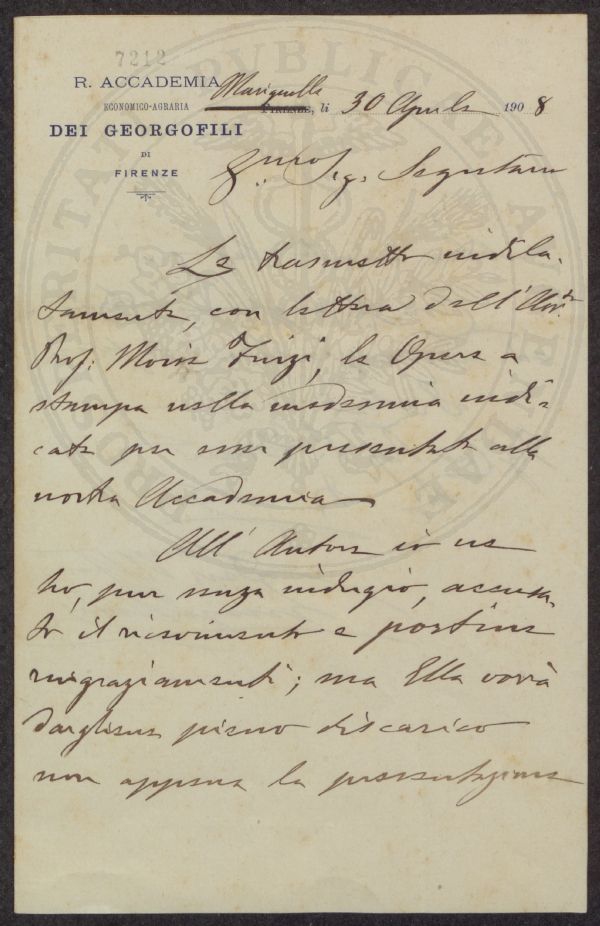 7212
R. ACCADEMIA
ECONOMICO-AGRARIA
DEI GEORGOFILI
DI
FIRENZE
Marignolle
FIRENZE, li 30 Aprile 1908
Sig. Segretario
Le trasmetto indila-
tamente, con lettera dell'Aut.
Prof. Tinzi, le Opere a
stampa nella medesima indi-
cate per esser presentate alla
nostra Accademia
All' Autore io ne
ho, pur senza indugio, accusa-
to il ricevimento e portine
ringraziamenti; ma Ella vorrà
dargliene pieno discarico
non appena la presentazione